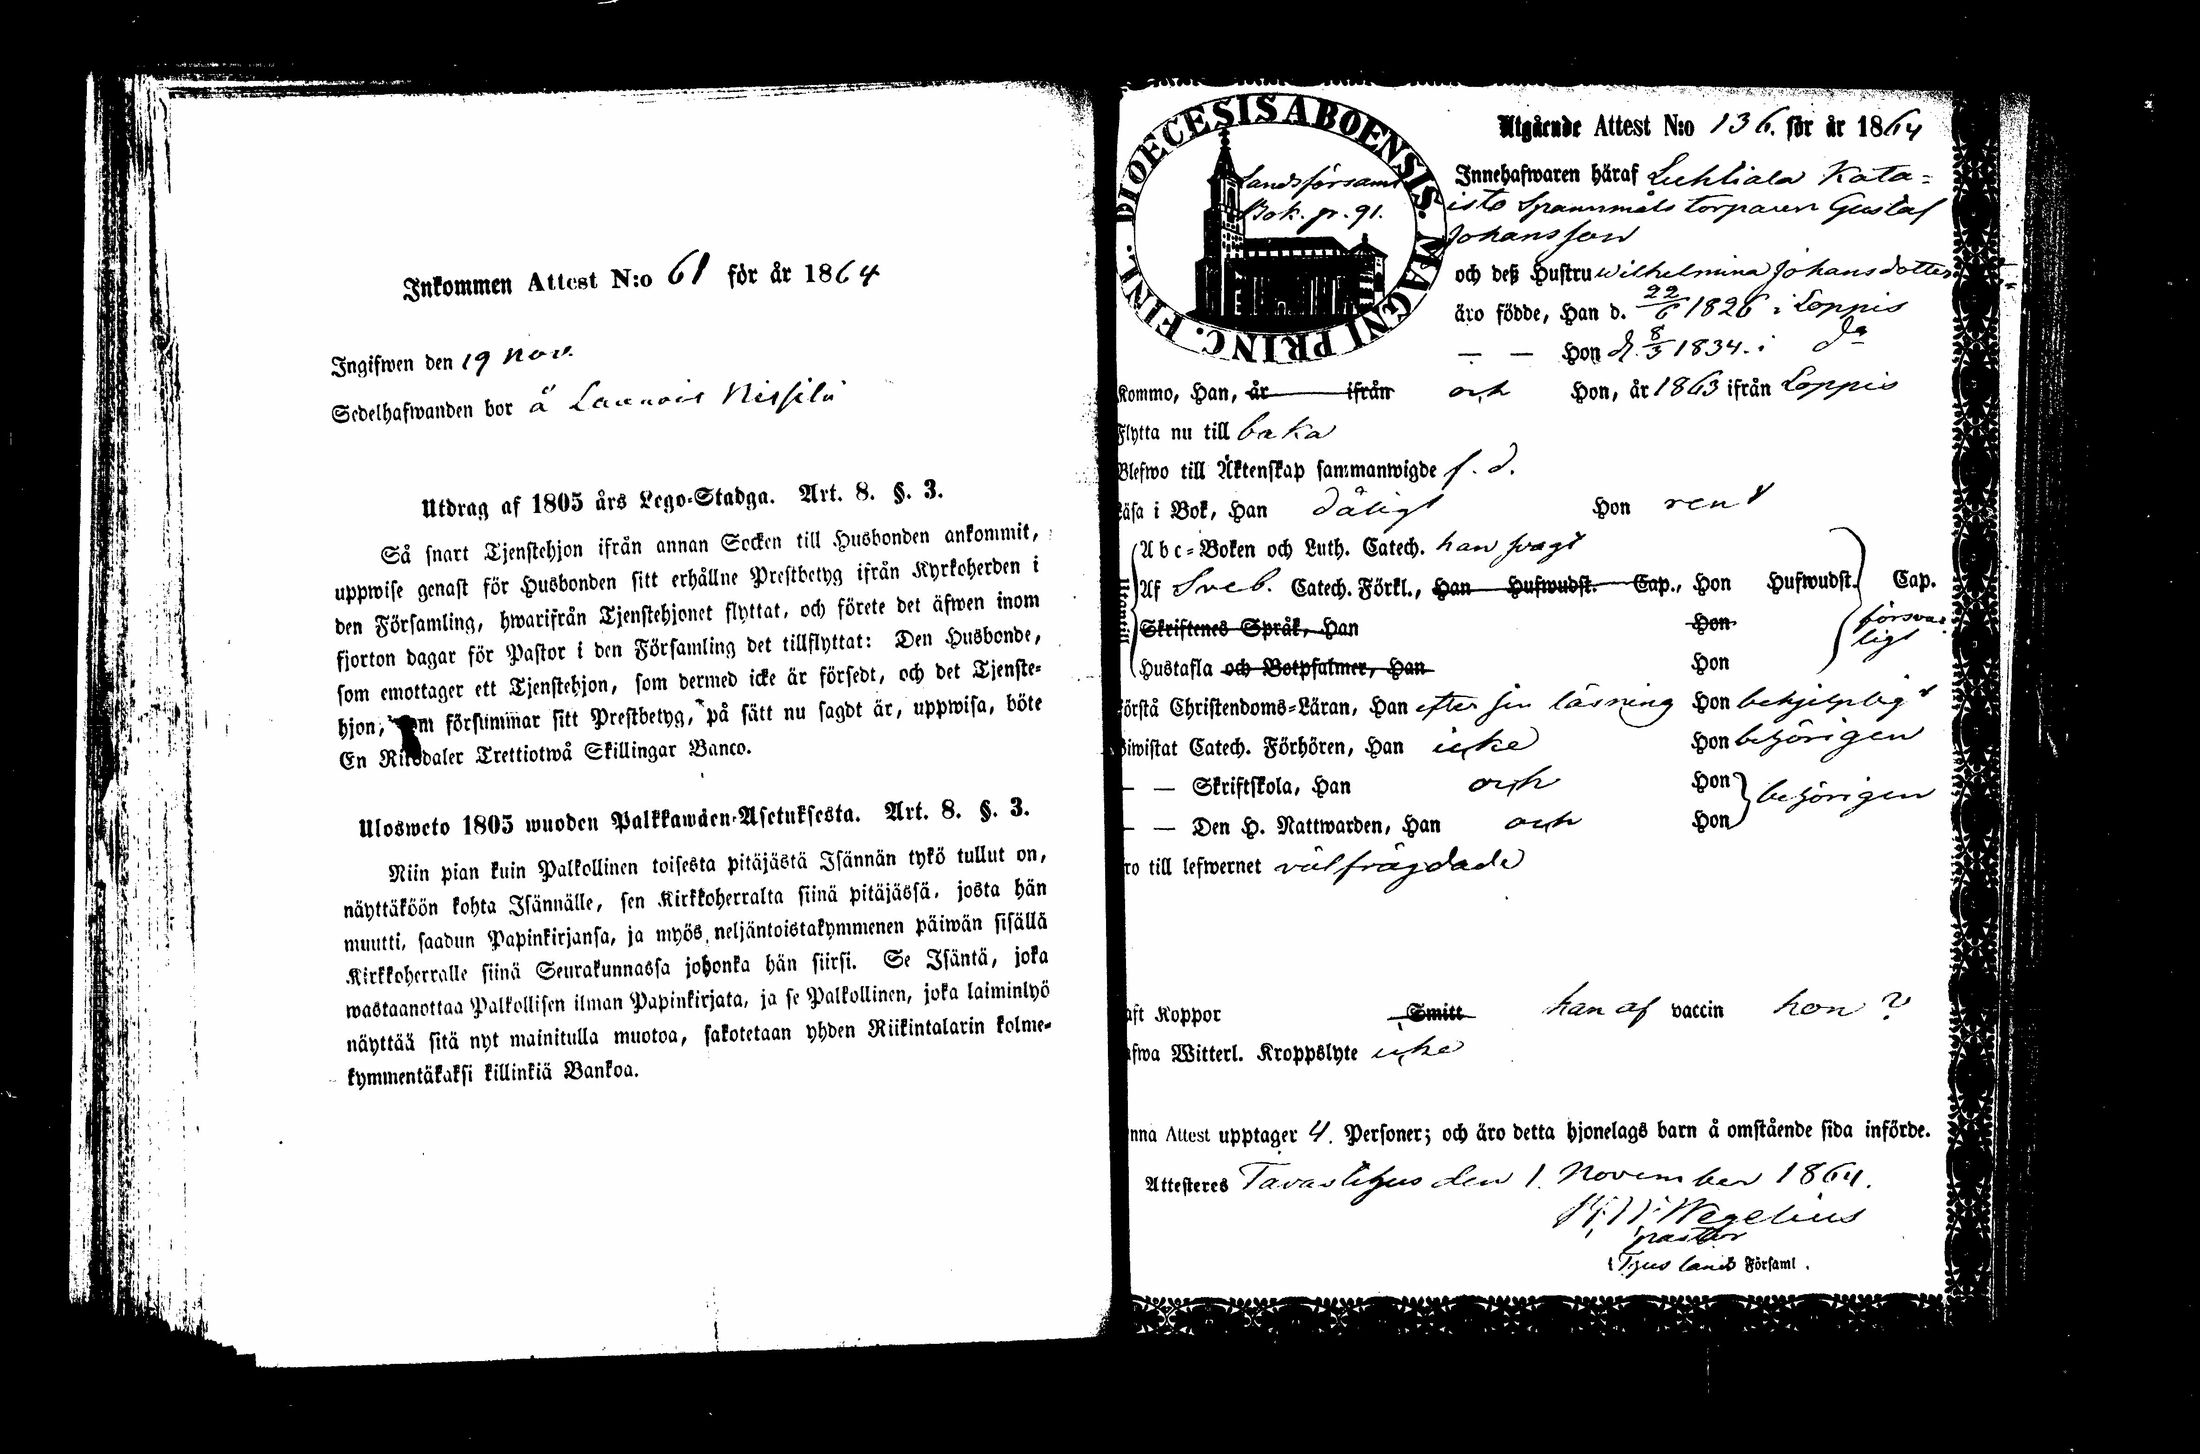 Inkommen Attest N:o 61 för år 1864
Ingifwen den 19 Nov.
Sedelhafwanden bor å Launois Nissilä
Utdrag af 1805 års Lego-Stadga. Art. 8. §. 3.
Så snart Tjenstehjon ifrån annan Socken till Husbonden ankommit,
uppwise genast för Husbonden sitt erhållne Prestbetyg ifrån Kyrkoherden i
den Församling, hwarifrån Tjenstehjonet flyttat, och förete det äfwen inom
fjorton dagar för Pastor i den Församling det tillflyttat: Den Husbonde,
som emottager ett Tjenstehjon, som dermed icke är försedt, och det Tjenste-
hjon, som försummar sitt Prestbetyg, på sätt nu sagdt är, uppwisa, böte
En Riksdaler Trettiotwå Skillingar Banco.
Ulosweto 1805 wuoden Palkkawäen-Asetuksesta. Art. 8. §. 3.
Niin pian kuin Palkollinen toisesta pitäjästä Isännän tykö tullut on,
näyttäköön kohta Isännälle, sen Kirkkoherralta siinä pitäjässä, josta hän
muutti, saadun Papinkirjansa, ja myös neljäntoistakymmenen päiwän sisällä
Kirkkoherralle siinä Seurakunnassa johonka hän siirsi. Se Isäntä, joka
wastaanottaa Palkollisen ilman Papinkirjata, ja se Palkollinen, joka laiminlyö
näyttää sitä nyt mainitulla muotoa, sakotetaan yhden Riikintalarin kolme-
kymmentäkaksi killinkiä Bankoa.
DIOECESIS ABOENSIS. MAGNI PRINC. FINL.
Landsförsaml
Bok. p. 91.
Utgående Attest N:o 136. för år 1864
Innehafwaren häraf Luhtiala Kata-
isto Spannmåls torparen Gustaf
Johansson
och deß Hustru Wilhelmina Johansdotter
äro födde, Han d. 22/6 1826 i Loppis
— — Hon d. 8/3 1834. i do
Kommo, Han, år ifrån och Hon, år 1863 ifrån Loppis
Flytta nu till baka
Blefwo till Äktenskap sammanwigde f. d.
Läsa i Bok, Han dåligt Hon rent
Abc-Boken och Luth. Catech. han svagt
Af Sveb. Catech. Förkl., Han Hufwudst. Cap., Hon Hufwudst. Cap.
Skriftenes Språk, Han Hon försvar
ligt
Hustafla och Botpsalmer, Han Hon
Förstå Christendoms-Läran, Han efter sin läsning Hon behjelpligt
Biwistat Catech. Förhören, Han icke Hon behörigen
— — Skriftskola, Han och Hon behörigen
— — Den H. Nattwarden, Han och Hon
ro till lefwernet välfrägdade
aft Koppor Smitt han af vaccin hon ?
afwa Witterl. Kroppslyte icke
nna Attest upptager 4. Personer; och äro detta hjonelags barn å omstående sida införde.
Attesteres Tavastehus den 1. November 1864.
Wegelius
pastor
i T:hus lands Församl.